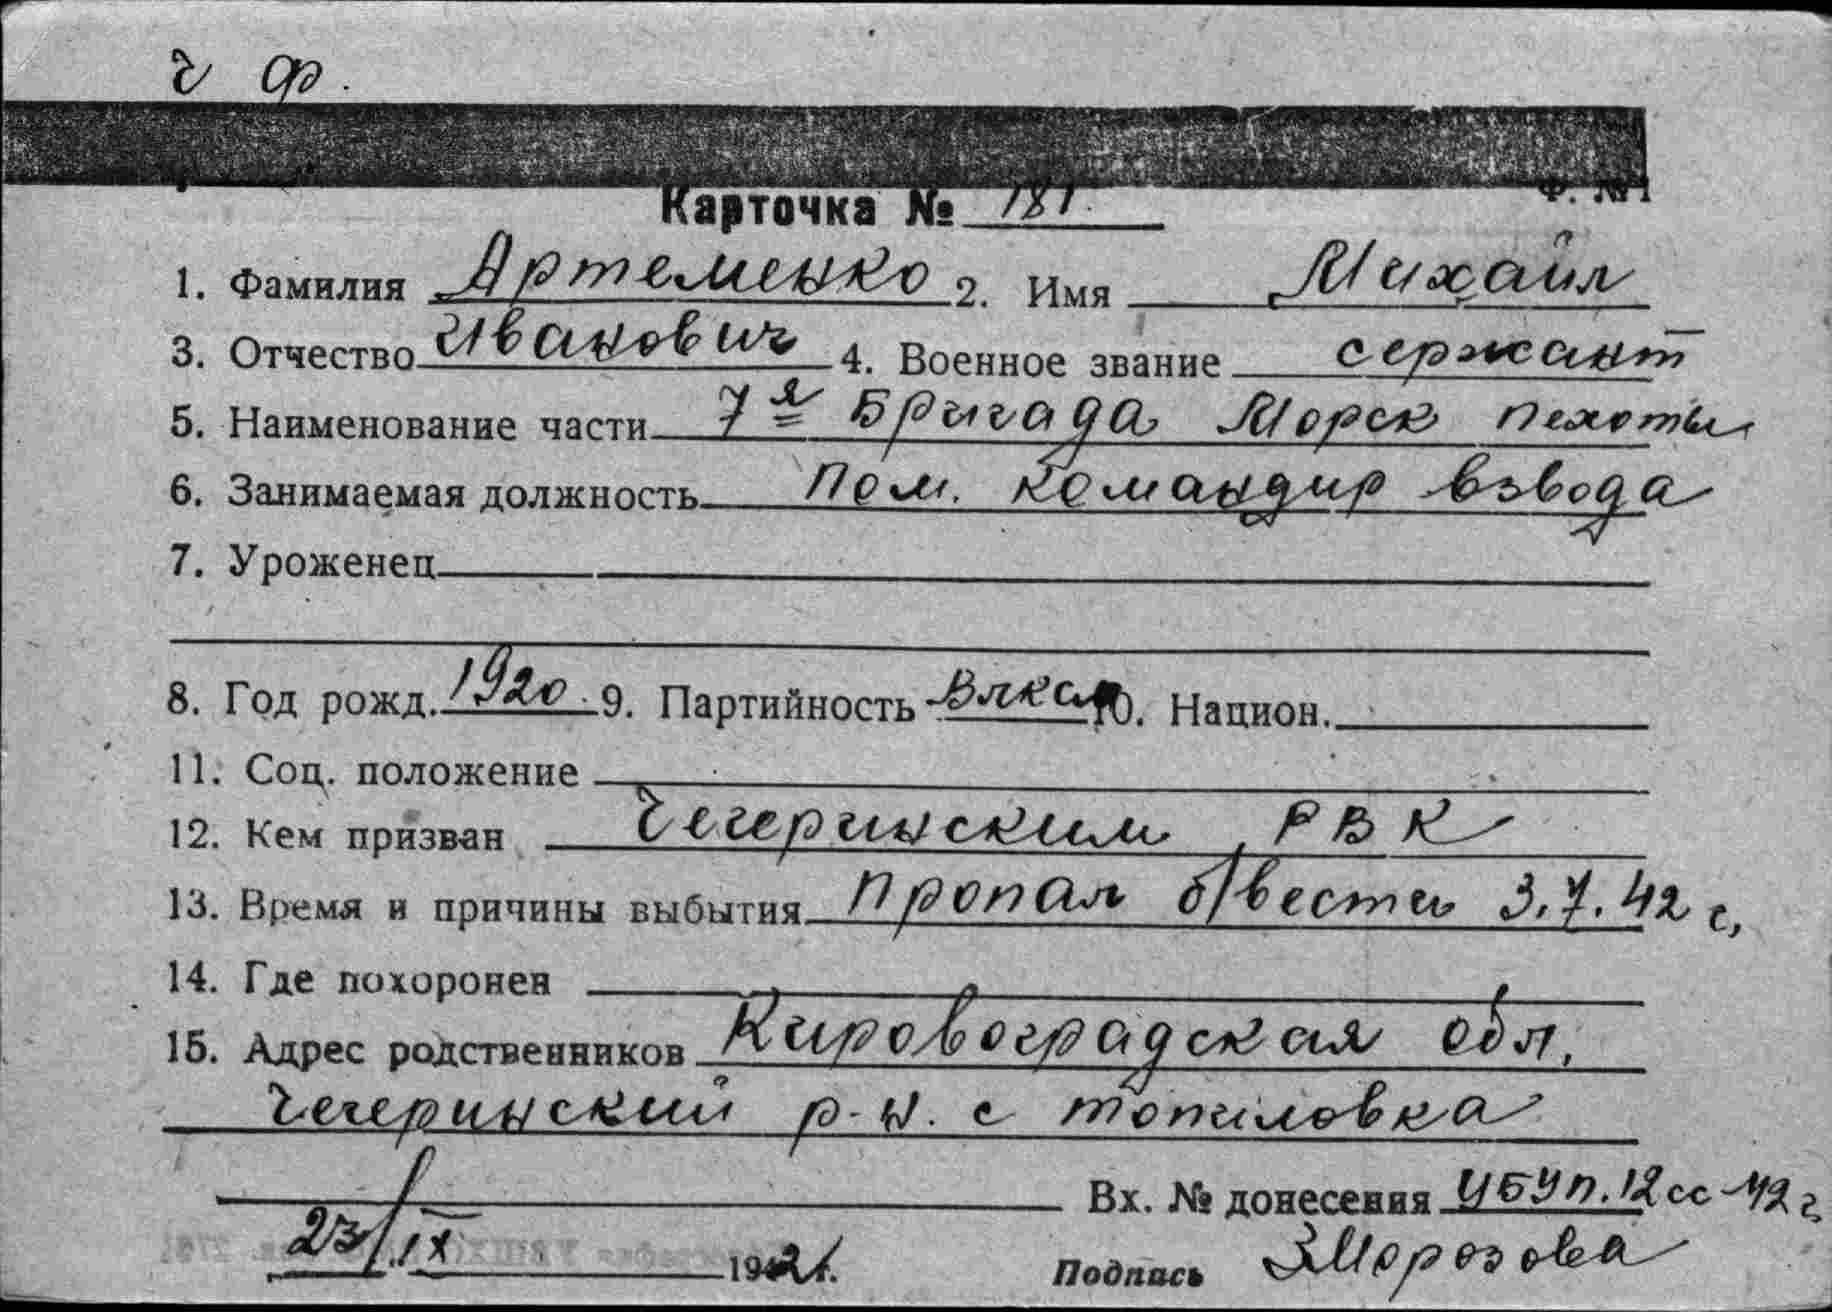 ч ф.
Ф. № 1
Карточка № 181
1. Фамилия Артеменко 2. Имя Михайл
3. Отчество Иванович 4. Военное звание сержант
5. Наименование части 7я Бригада Морск пехоты
6. Занимаемая должность Пом. командир взвода
7. Уроженец
8. Год рожд. 1920. 9. Партийность Влксм 10. Национ.
11. Соц. положение
12. Кем призван Чегеринским РВК
13. Время и причины выбытия Пропал б/вести 3.7.42 г,
14. Где похоронен
15. Адрес родственников Кировоградская обл,
Чегеринский р-н. с Топиловка
Вх. № донесения УБУп. 12сс-42г
23/IX 1942 г. Подпись Морозова